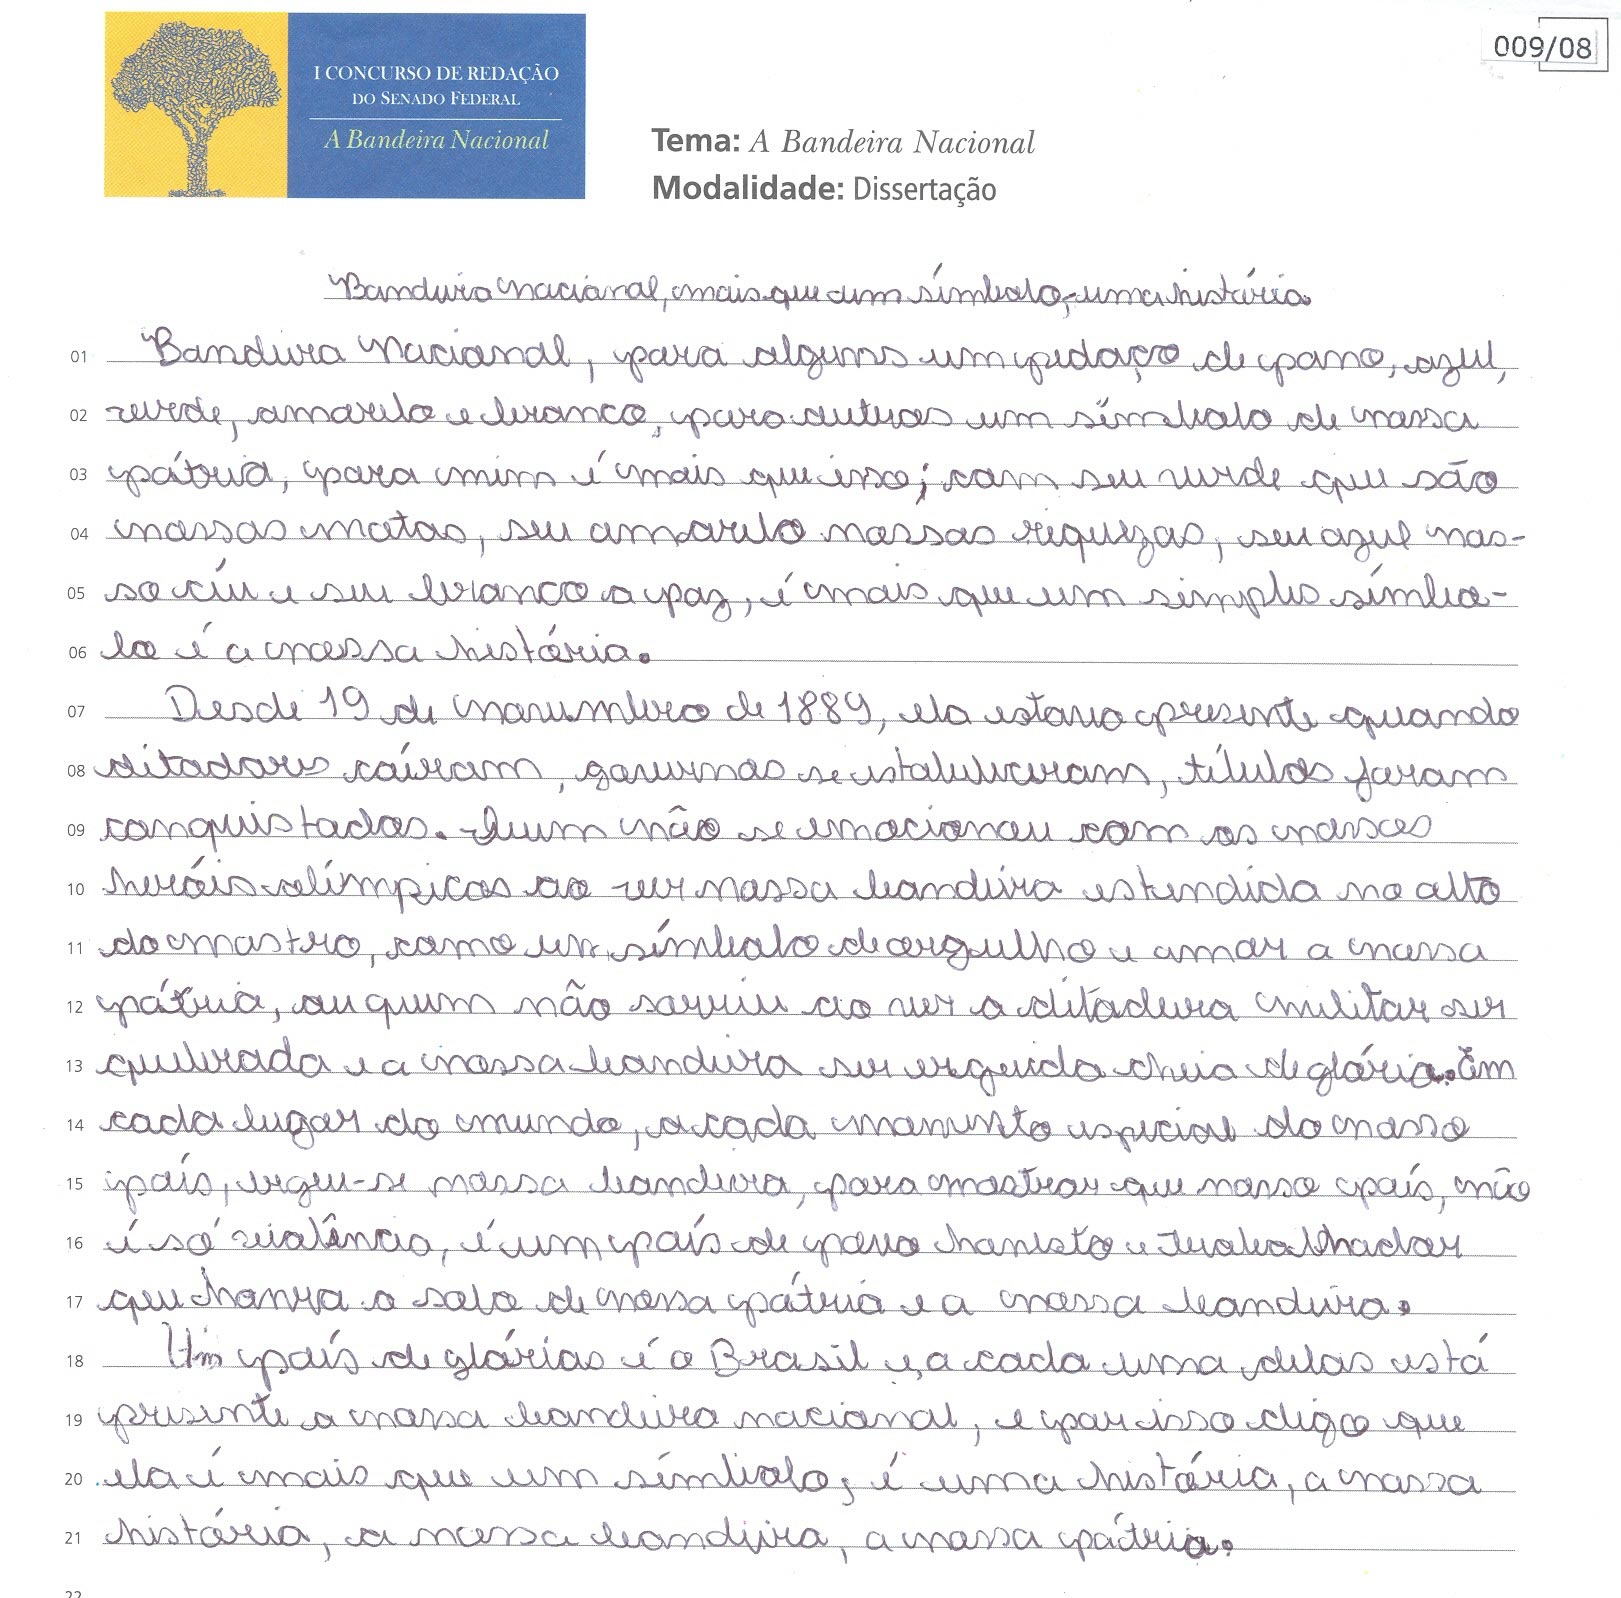 009/08
I CONCURSO DE REDAÇÃO
DO SENADO FEDERAL
A Bandeira Nacional
Tema: A Bandeira Nacional
Modalidade: Dissertação
Bandeira Nacional, mais que um símbolo, uma história.
01 Bandeira Nacional, para alguns um pedaço de pano, azul,
02 verde, amarelo e branco, para outros um símbolo de nossa
03 pátria, para mim é mais que isso; com seu verde que são
04 nossas matas, seu amarelo nossas riquezas, seu azul nos-
05 so céu e seu branco a paz, é mais que um simples símbo-
06 lo é a nossa história.
07 Desde 19 de novembro de 1889, ela estava presente quando
08 ditadores caíram, governos se estabeleceram, títulos foram
09 conquistados. Quem não se emocionou com os nossos
10 heróis olímpicos ao ver nossa bandeira estendida no alto
11 do mastro, como um símbolo de orgulho e amor a nossa
12 pátria, ou quem não sorriu ao ver a ditadura militar ser
13 quebrada e a nossa bandeira ser erguida cheia de glória. Em
14 cada lugar do mundo, a cada momento especial do nosso
15 país, ergue-se nossa bandeira, para mostrar que nosso país, não
16 é só violência, é um país de povo honesto e trabalhador
17 que honra o solo de nossa pátria e a nossa bandeira.
18 Um país de glórias é o Brasil e, a cada uma delas está
19 presente a nossa bandeira nacional, e por isso digo que
20 ela é mais que um símbolo; é uma história, a nossa
21 história, a nossa bandeira, a nossa pátria.
22